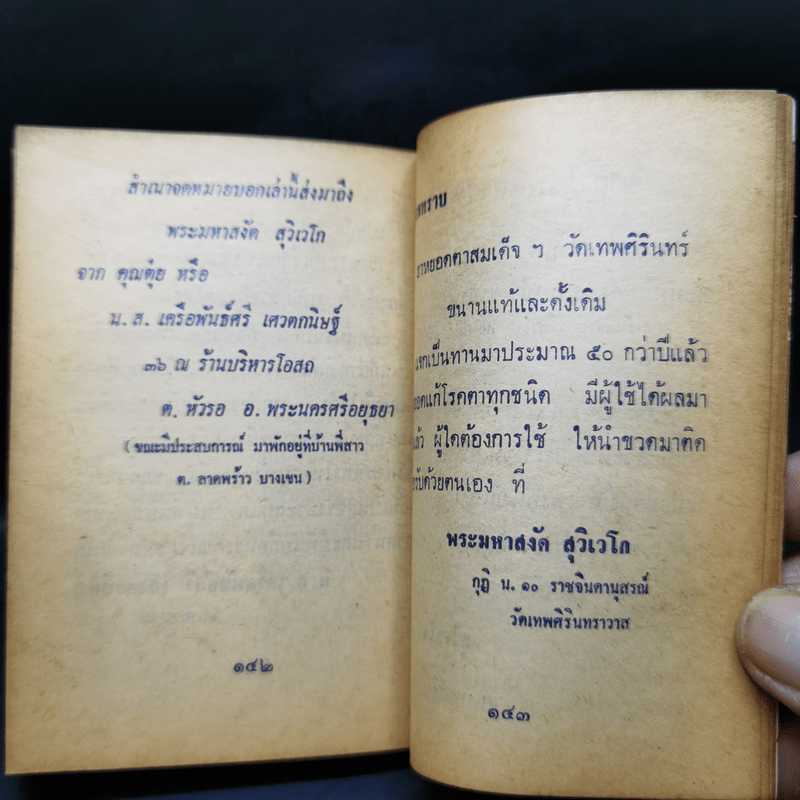 สำเนาจดหมายบอกเล่านี้ส่งมาถึง
พระมหาสงัด สุวิเวโก
จาก คุณตุ๋ย หรือ
น.ส. เครือพันธ์ศรี เศวตกนิษฐ์
๓๖ ณ ร้านบริหารโอสถ
ต. หัวรอ อ. พระนครศรีอยุธยา
(ขณะมีประสบการณ์ มาพักอยู่ที่บ้านพี่สาว
ต. ลาดพร้าว บางเขน)
๑๔๒
ทราบ
ยาหยอดตาสมเด็จ ฯ วัดเทพศิรินทร์
ขนานแท้และดั้งเดิม
แจกเป็นทานมาประมาณ ๕๐ กว่าปีแล้ว
หยอดแก้โรคตาทุกชนิด มีผู้ใช้ได้ผลมา
แล้ว ผู้ใดต้องการใช้ ให้นำขวดมาติด
รับด้วยตนเอง ที่
พระมหาสงัด สุวิเวโก
กุฏิ น. ๑๐ ราชจินดานุสรณ์
วัดเทพศิรินทราวาส
๑๔๓